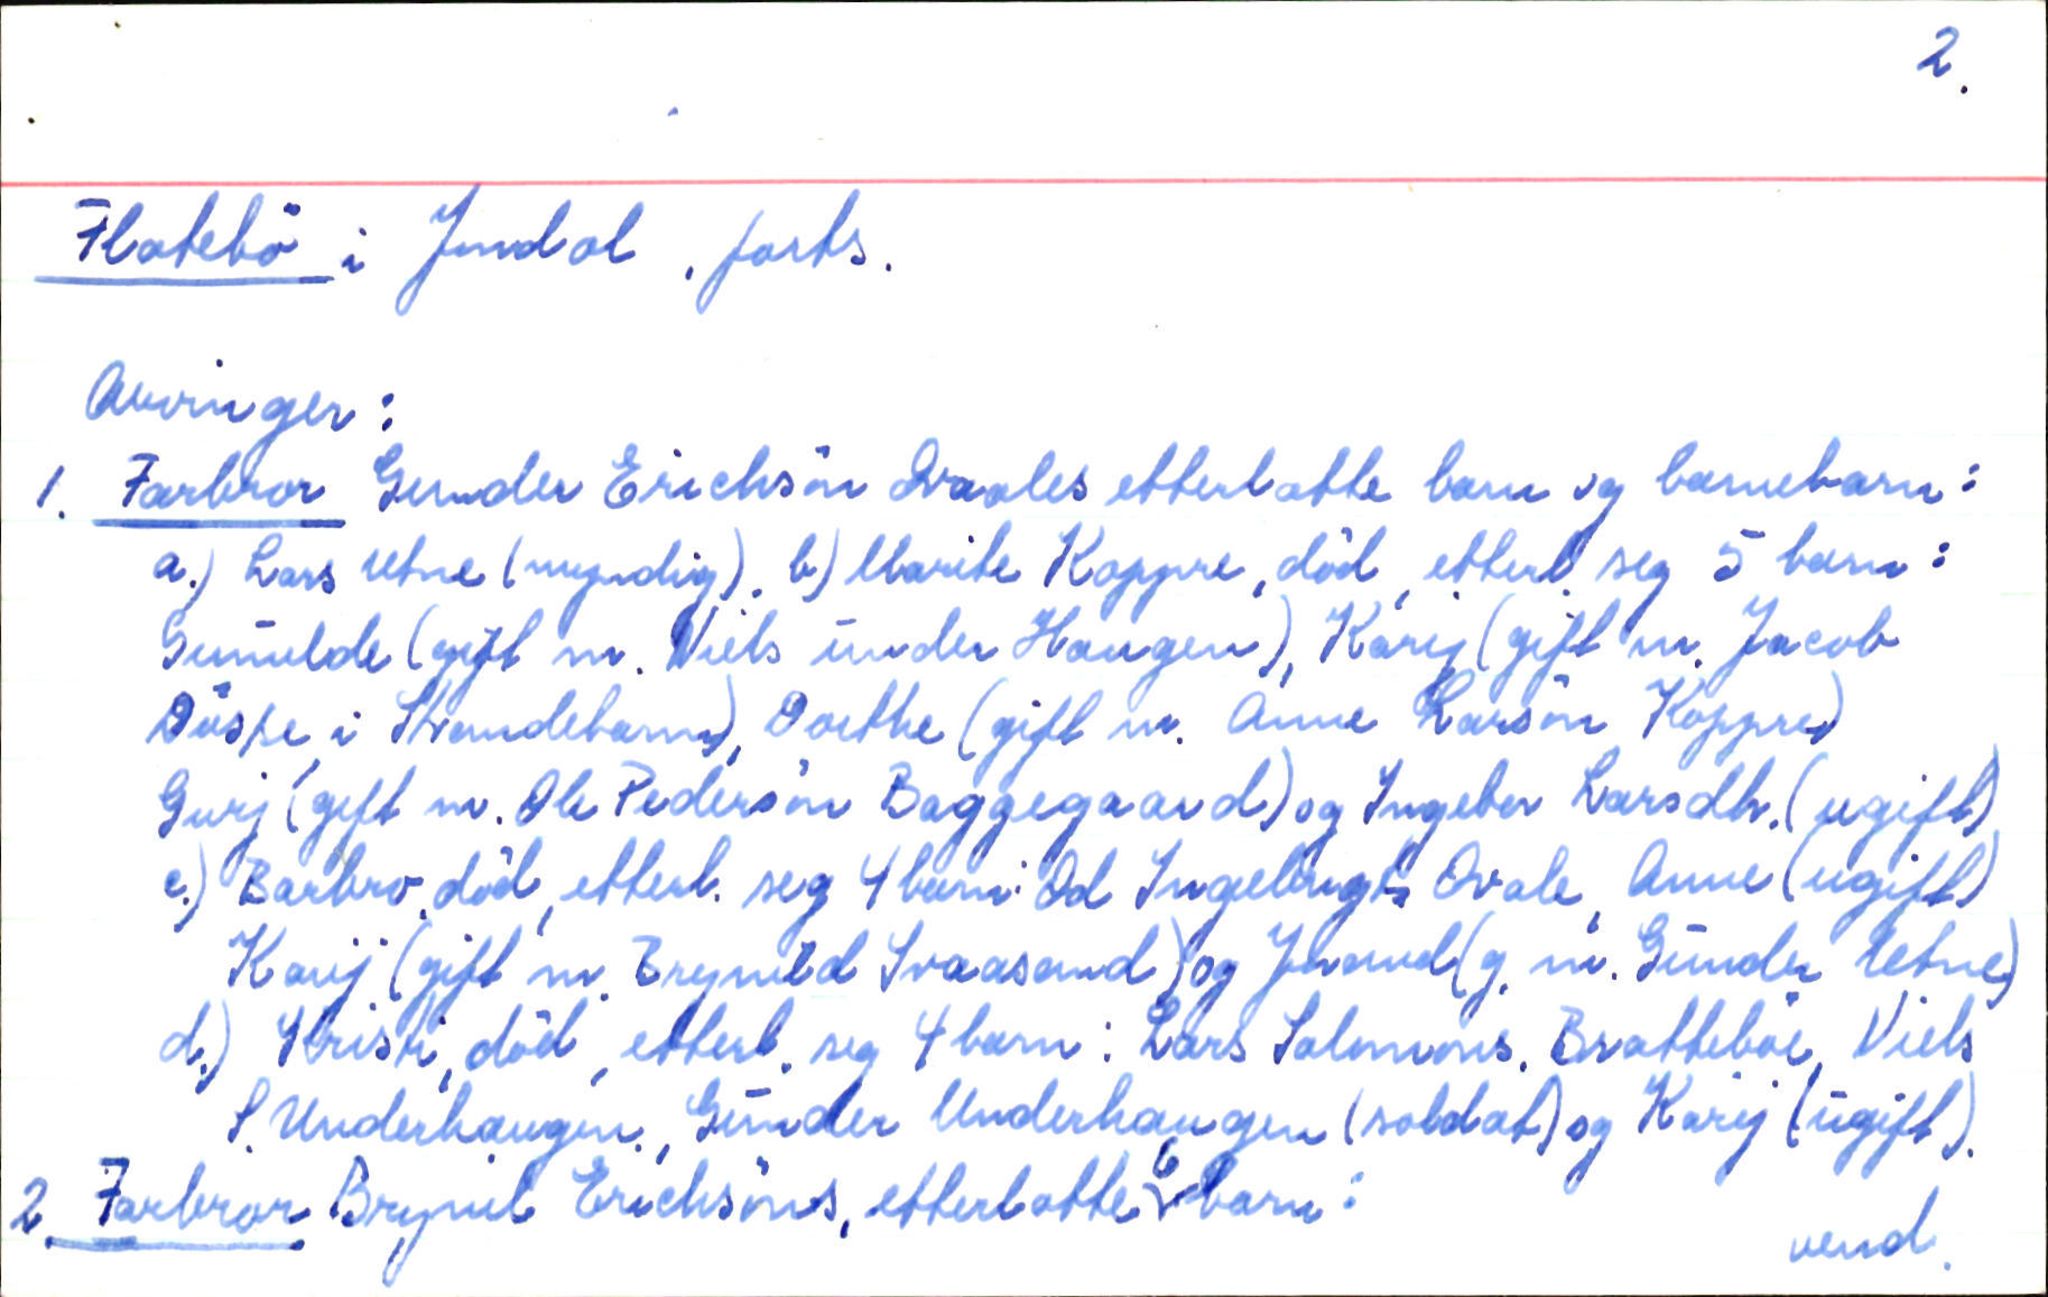 2.
Flatebö i Jondal, forts.
Arvinger:
1. Farbror Gunder Erichsön Qvaales etterlatte barn og barnebarn:
a.) Lars Utne (myndig). b) Marite Koppre, död, etterl. seg 5 barn:
Gunilde (gift m. Niels under Haugen), Karij (gift m. Jacob
Döspe, i Strandebarm), Dorthe (gift m. Anne Larsön Koppre)
Gurj (gift m. Ole Pedersön Baggegaard) og Ingebor Larsdtr. (ugift)
c.) Barbro, död, etterl. seg 4 barn: Od Ingebrigts Qvale, Anne (ugift)
Karij (gift m. Brynild Svaasand) og Jorand (g. m. Gunder Utne)
d.) Kristi, död, etterl. seg 4 barn: Lars Salomons. Bratteböe, Niels
S. Underhaugen, Gunder Underhaugen (soldat) og Karij (ugift).
2. Farbror Brynil Erichsöns, etterlatte 6 barn:
vend.